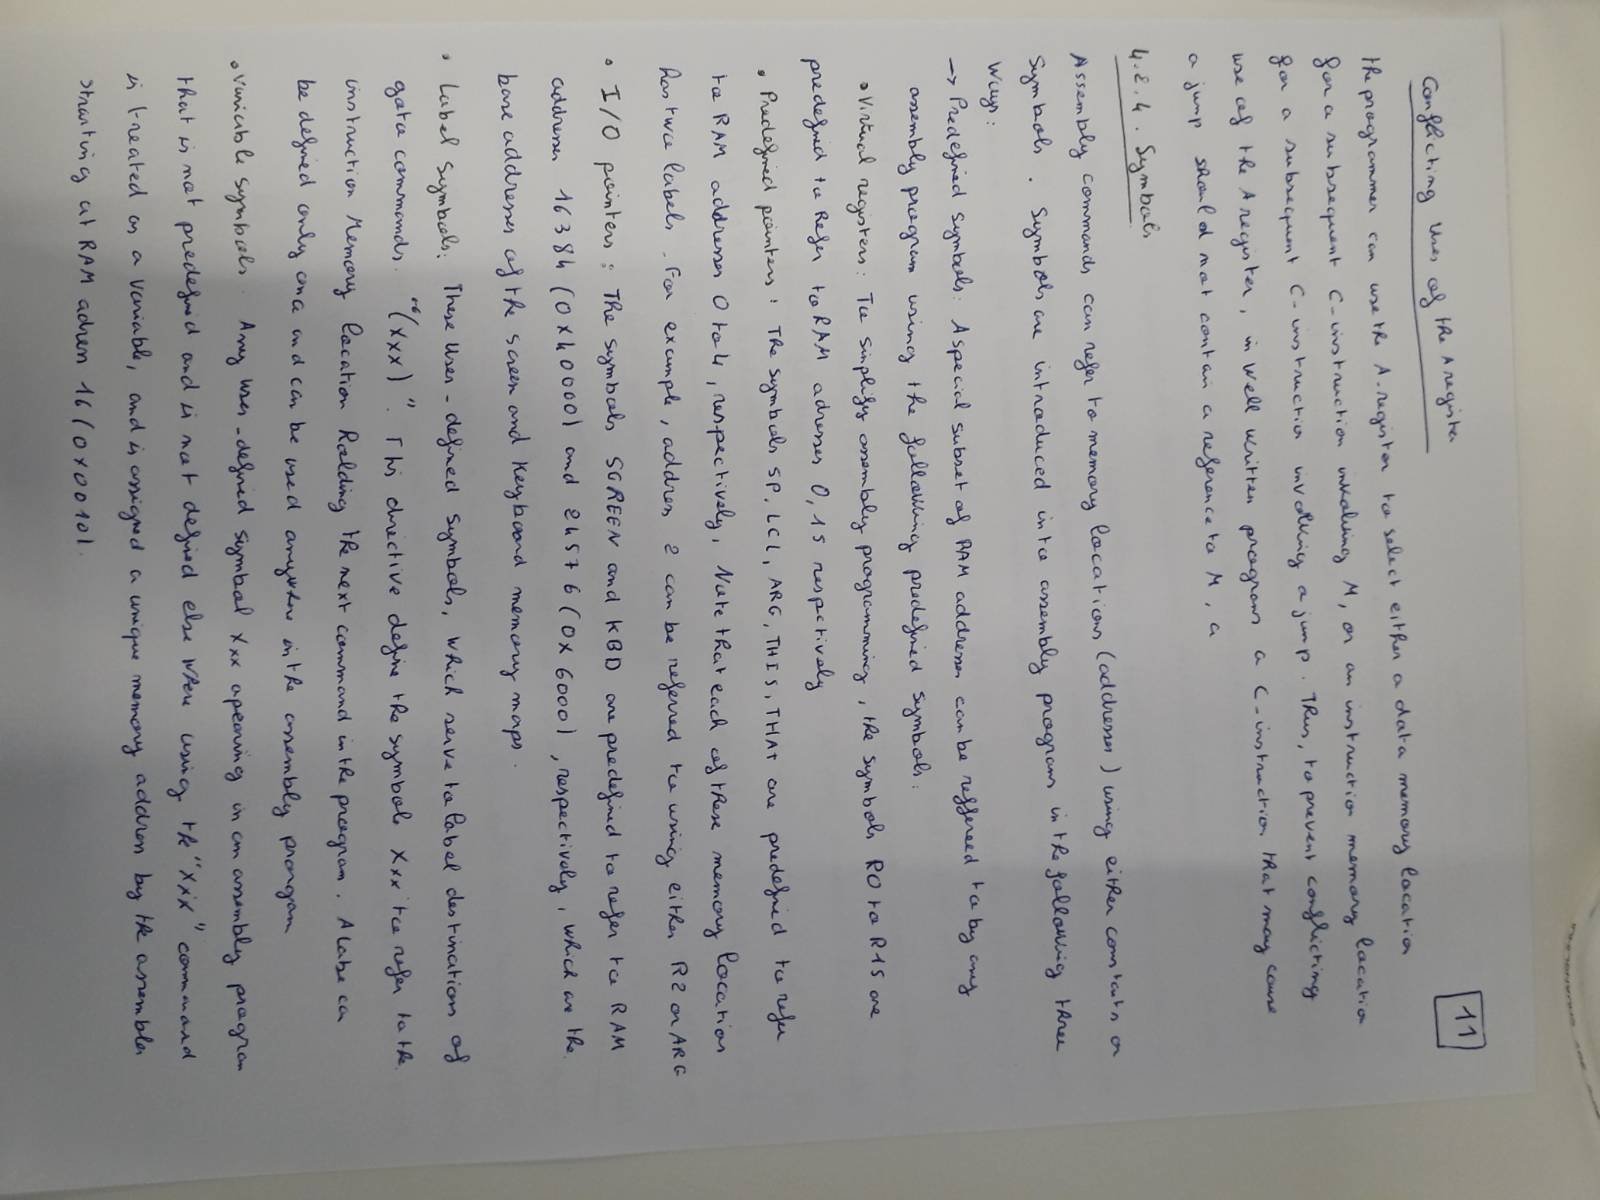 11
Conflicting Uses of the A register
the programmer can use the A-register to select either a data memory location
for a subsequent C-instruction involving M, or an instruction memory location
for a subsequent C-instruction involving a jump. Thus, to prevent conflicting
use of the A register, in well written program a C-instruction that may cause
a jump should not contain a reference to M, a
4.2.4. Symbols
Assembly commands can refer to memory locations (addresses) using either constants or
Symbols. Symbols are introduced into assembly program in the following three
ways:
-> Predefined symbols: A special subset of RAM addresses can be reffered to by any
assembly program using the following predefined symbols:
• Virtual registers: To simplify assembly programming, the symbols R0 to R15 are
predefined to Refer to RAM adresses 0, 15 respectively
• Predefined pointers: The symbols SP, LCL, ARG, THIS, THAT are predefined to refer
to RAM addresses 0 to 4, respectively, Note that each of these memory location
has two labels. For example, address 2 can be referred to using either R2 or ARG
• I/O pointers: The symbols SCREEN and KBD are predefined to refer to RAM
addresses 16384 (0x4000) and 24576 (0x6000), respectively, which are the
base addresses of the screen and keyboard memory maps.
• Label Symbols: These user-defined symbols, which serve to label destination of
goto commands. "(Xxx)". This directive define the symbols Xxx to refer to the
instruction Memory location holding the next command in the program. A labe can
be defined only once and can be used anywhere in the assembly program
• Variable symbols. Any user-defined symbol Xxx apearing in an assembly program
that is not predefined and is not defined else where using the "Xxx" command
is treated as a variable, and is assigned a unique memory address by the assembler
starting at RAM adress 16 (0x0010).